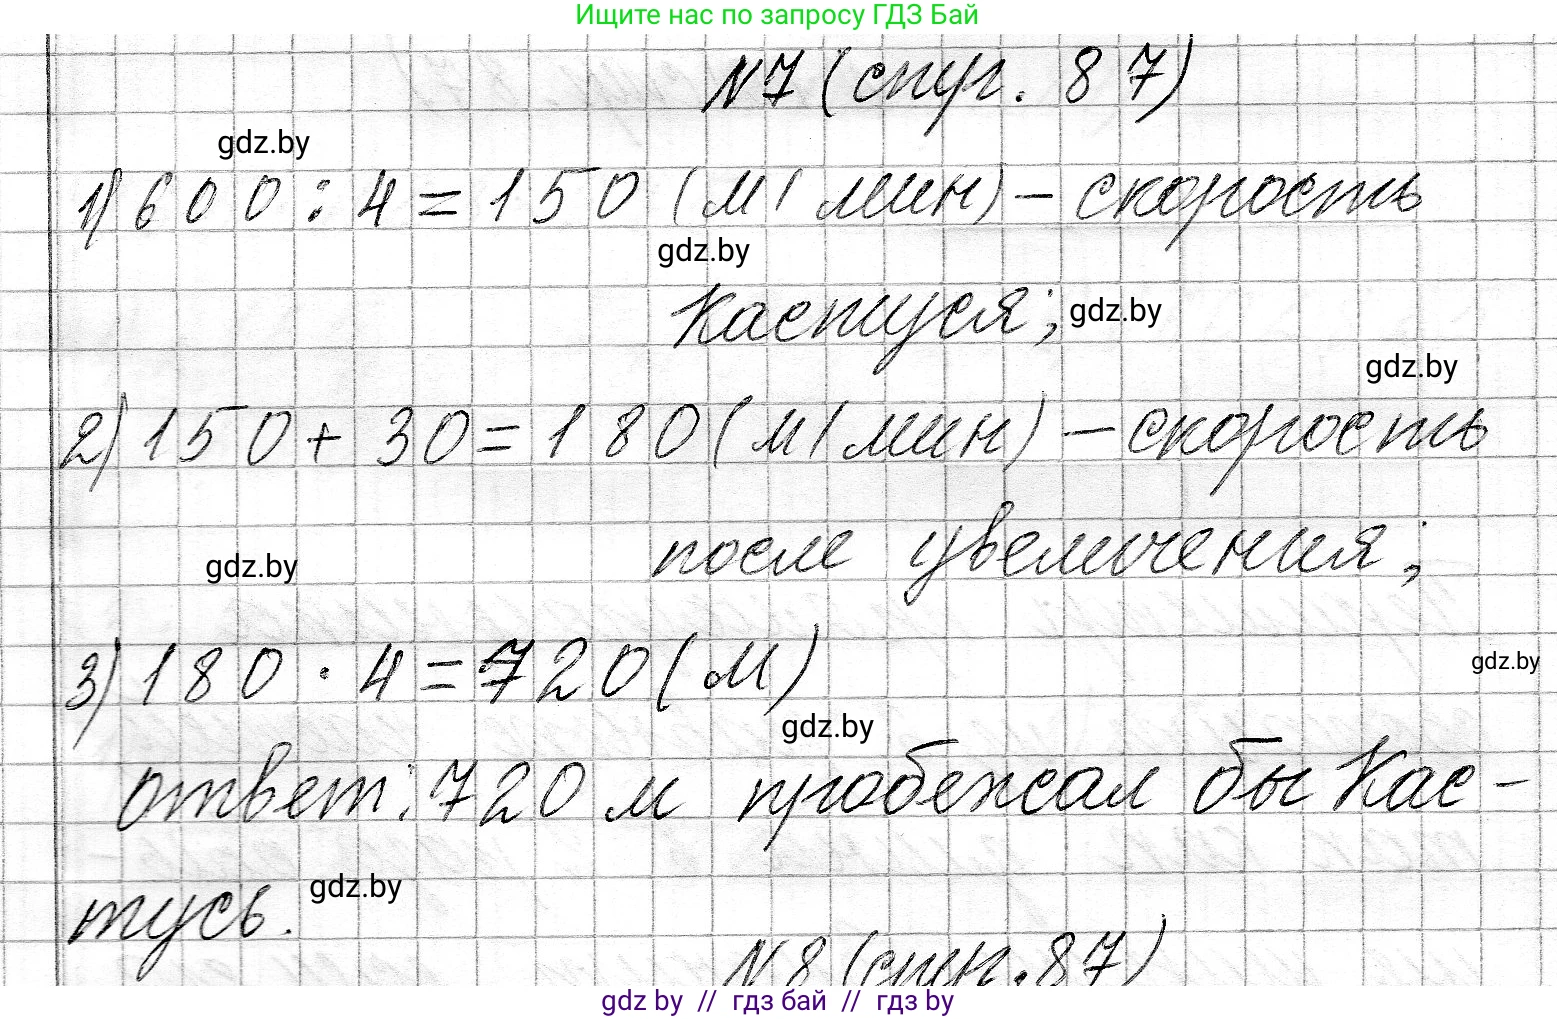 Ищите нас по запросу ГДЗ Бай
N7 (стр. 87)
gdz.by
1) 600 : 4 = 150 (м/мин) – скорость
gdz.by
Кастуся;
gdz.by
gdz.by
2) 150 + 30 = 180 (м/мин) – скорость
после увеличения;
gdz.by
3) 180 · 4 = 720 (м)
gdz.by
gdz.by
ответ: 720 м пробежал бы Кас-
тусь.
gdz.by
N8 (стр. 87)
gdz by // гдз бай // гдз by